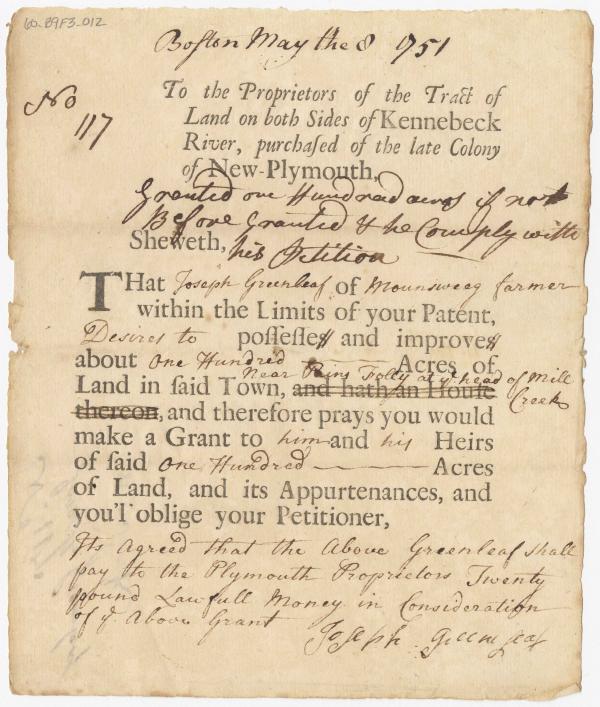 60-B9F3-012
Boston May the 8 1751
No
117
To the Proprietors of the Tract of
Land on both Sides of Kennebeck
River, purchaſed of the late Colony
of New-Plymouth,
Granted one Hundread acres if not
Before Granted & he Comply with
Sheweth, his Petition
THat Joseph Greenleaf of Mounsweeg farmer
within the Limits of your Patent,
Desires to poſſeſſes and improves
about One Hundred Acres of
Near Pains Folly at yᵉ head of Mill
Land in ſaid Town, and hath an Houſe Creek
thereon, and therefore prays you would
make a Grant to him and his Heirs
of ſaid One Hundred Acres
of Land, and its Appurtenances, and
you'l oblige your Petitioner,
Its Agreed that the Above Greenleaf shall
pay to the Plymouth Proprietors Twenty
pound Lawfull Money in Consideration
of yᵉ Above Grant
Joseph Greenleaf